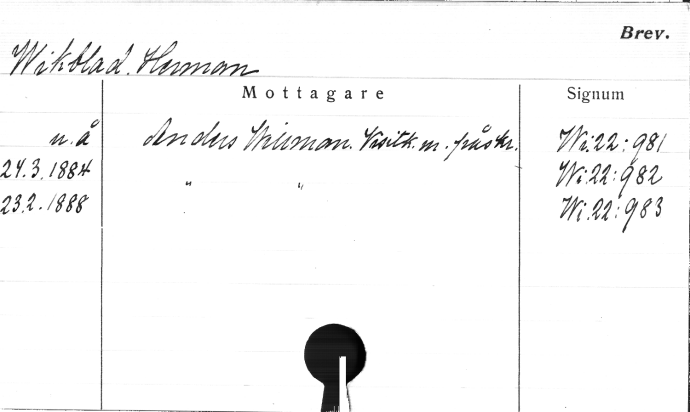 Brev.
Wikblad. Herman
Mottagare Signum
u. å Anders Wieman. Visitk. m. påskr. Wi.22:981
24.3.1884 " " Wi.22:982
23.2.1888 Wi.22:983